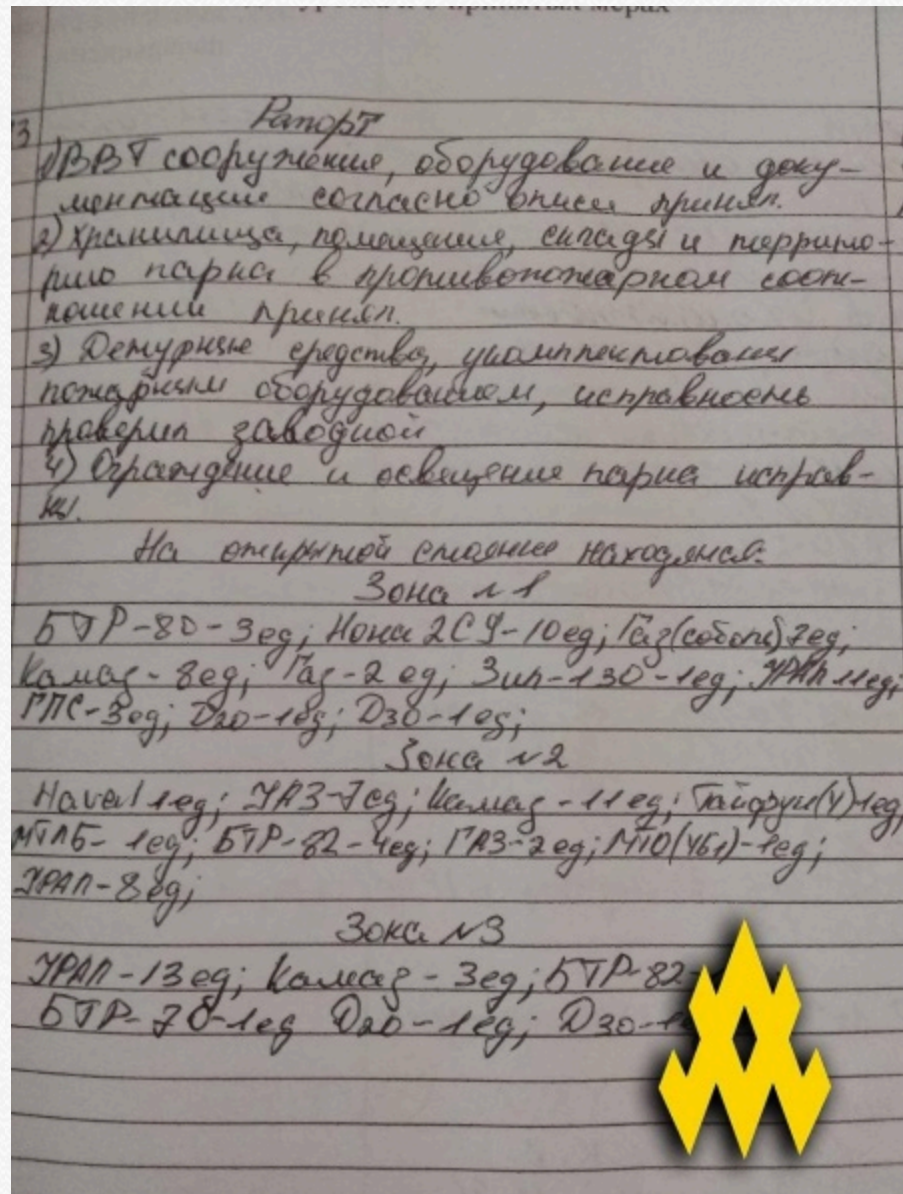 и о принятых мерах
3 Рапорт
1) ВВТ сооружение, оборудование и доку-
ментации согласно описи принял.
2) Хранилища, помещения, склады и террито-
рию парка в противопожарном соот-
ношении принял.
3) Дежурные средства, укомплектованы
пожарным оборудованием, исправность
проверил заводкой
4) Ограждение и освещение парка исправ-
ны.
На открытой стоянке находятся:
Зона №1
БТР-80-3ед; Нона 2С9-10ед; Газ(соболь)7ед;
Камаз-8ед; Газ-2ед; Зил-130-1ед; УРАЛ 11ед;
ГПС-3ед; Д20-1ед; Д30-1ед;
Зона №2
Haval 1ед; УАЗ-7ед; Камаз-11ед; Тайфун(У)1ед;
МТЛБ-1ед; БТР-82-4ед; ГАЗ-2ед; МТО(УБ1)-1ед;
УРАЛ-8ед;
Зона №3
УРАЛ-13ед; Камаз-3ед; БТР-82-
БТР-70-1ед Д20-1ед; Д30-1